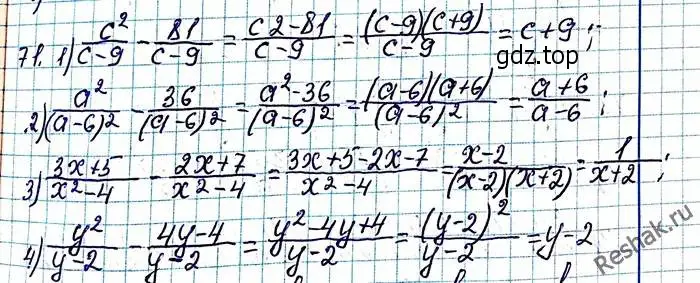 71. 1) c²/(c-9) - 81/(c-9) = (c2-81)/(c-9) = ((c-9)(c+9))/(c-9) = c+9;
gdz.top
2) a²/(a-6)² - 36/(a-6)² = (a²-36)/(a-6)² = ((a-6)(a+6))/(a-6)² = (a+6)/(a-6);
3) (3x+5)/(x²-4) - (2x+7)/(x²-4) = (3x+5-2x-7)/(x²-4) = (x-2)/((x-2)(x+2)) = 1/(x+2);
4) y²/(y-2) - (4y-4)/(y-2) = (y²-4y+4)/(y-2) = (y-2)²/(y-2) = y-2
Reshak.ru